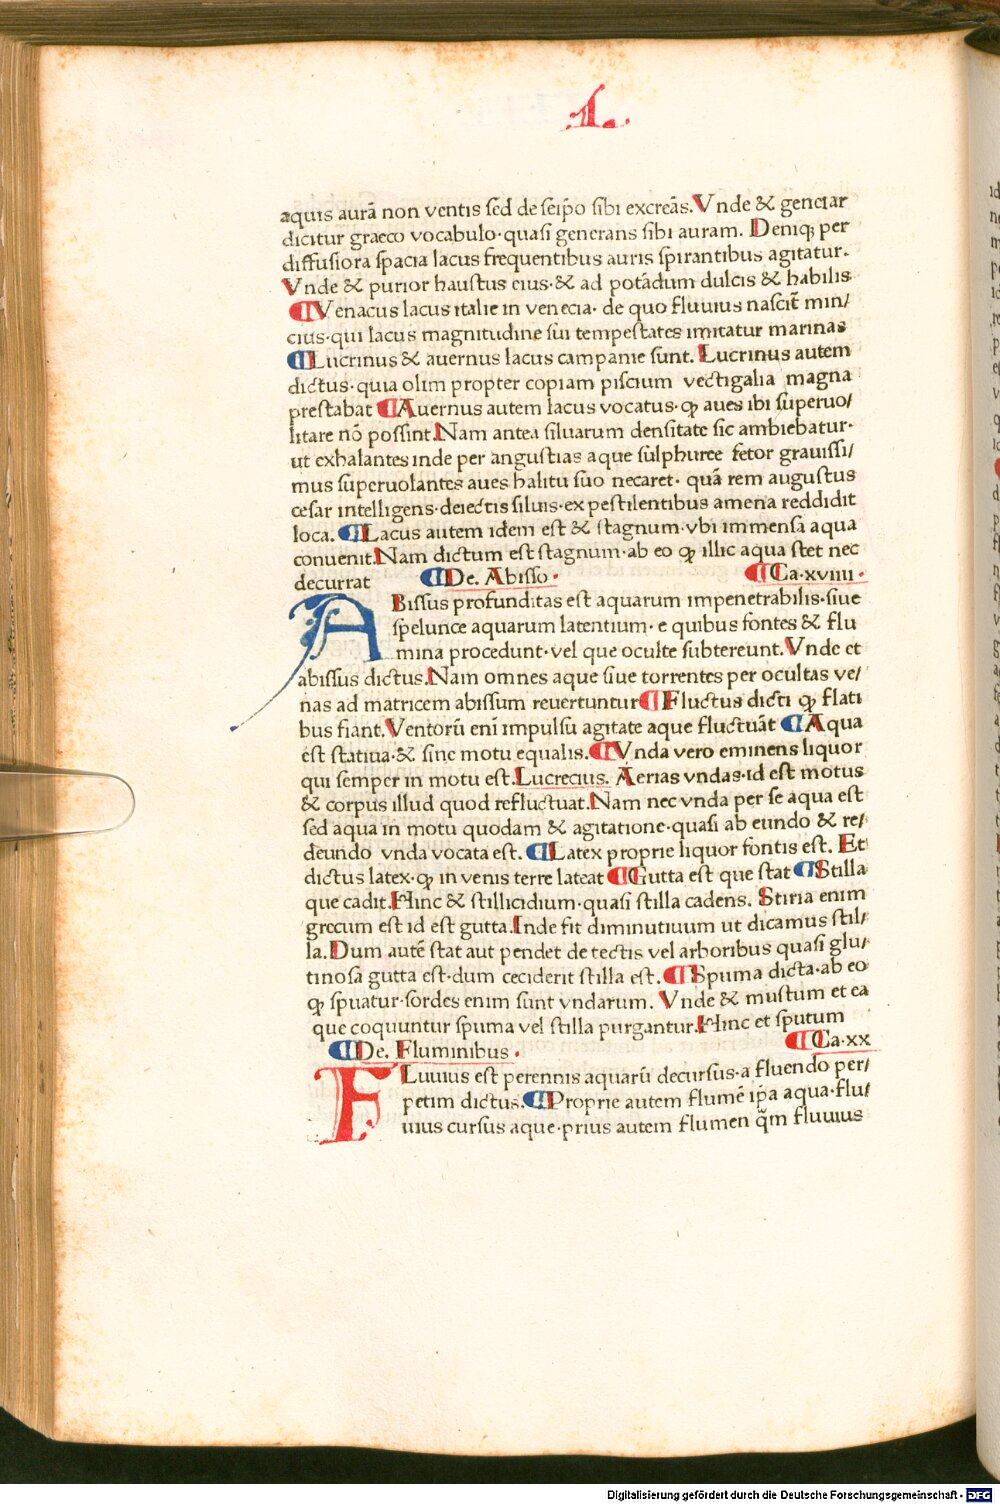 1.
aquis aurā non ventis sed de seip̄o sibi excreās. Vnde & genezar
dicitur graeco vocabulo·quasi generans sibi auram. Deniqꝫ per
diffusiora spacia lacus frequentibus auris spirantibus agitatur.
Vnde & purior haustus eius·& ad potādum dulcis & habilis
¶Venacus lacus italie in venecia· de quo fluuius nascit̄ min/
cius·qui lacus magnitudine sui tempestates imitatur marinas
¶Lucrinus & auernus lacus campanie sunt. Lucrinus autem
dictus·quia olim propter copiam piscium vectigalia magna
prestabat ¶Auernus autem lacus vocatus·ꝙ aues ibi superuo/
litare nō possint. Nam antea siluarum densitate sic ambiebatur·
ut exhalantes inde per angustias aque sulphuree fetor grauissi/
mus superuolantes aues halitu suo necaret· quā rem augustus
cesar intelligens·deiectis siluis·ex pestilentibus amena reddidit
loca. ¶Lacus autem idem est & stagnum·vbi immensa aqua
conuenit. Nam dictum est stagnum·ab eo ꝙ illic aqua stet nec
decurrat ¶De. Abisso· ¶Ca·xviiii·
ABissus profunditas est aquarum impenetrabilis·siue
spelunce aquarum latentium·e quibus fontes & flu
mina procedunt·vel que oculte subtereunt. Vnde et
abissus dictus. Nam omnes aque siue torrentes per ocultas ve/
nas ad matricem abissum reuertuntur ¶Fluctus dicti ꝙ flati
bus fiant. Ventorū eni impulsu agitate aque fluctuāt ¶Aqua
est statiua·& sine motu equalis. ¶Vnda vero eminens liquor
qui semper in motu est. Lucrecius. Aerias vndas·id est motus
& corpus illud quod refluctuat. Nam nec vnda per se aqua est
sed aqua in motu quodam & agitatione·quasi ab eundo & re/
deundo vnda vocata est. ¶Latex proprie liquor fontis est. Et
dictus latex·ꝙ in venis terre lateat ¶Gutta est que stat ¶Stilla
que cadit. Hinc & stillicidium·quasi stilla cadens. Stiria enim
grecum est id est gutta. Inde fit diminutiuum ut dicamus stil/
la. Dum autē stat aut pendet de tectis vel arboribus quasi glu/
tinosa gutta est·dum ceciderit stilla est. ¶Spuma dicta·ab eo
ꝙ spuatur·sordes enim sunt vndarum. Vnde & mustum et ea
que coquuntur spuma vel stilla purgantur. Hinc et sputum
¶De. Fluminibus· ¶Ca·xx
FLuuius est perennis aquarū decursus·a fluendo per/
petim dictus. ¶Proprie autem flumē ip̄a aqua·flu/
uius cursus aque·prius autem flumen q̄m fluuius
Digitalisierung gefördert durch die Deutsche Forschungsgemeinschaft - DFG